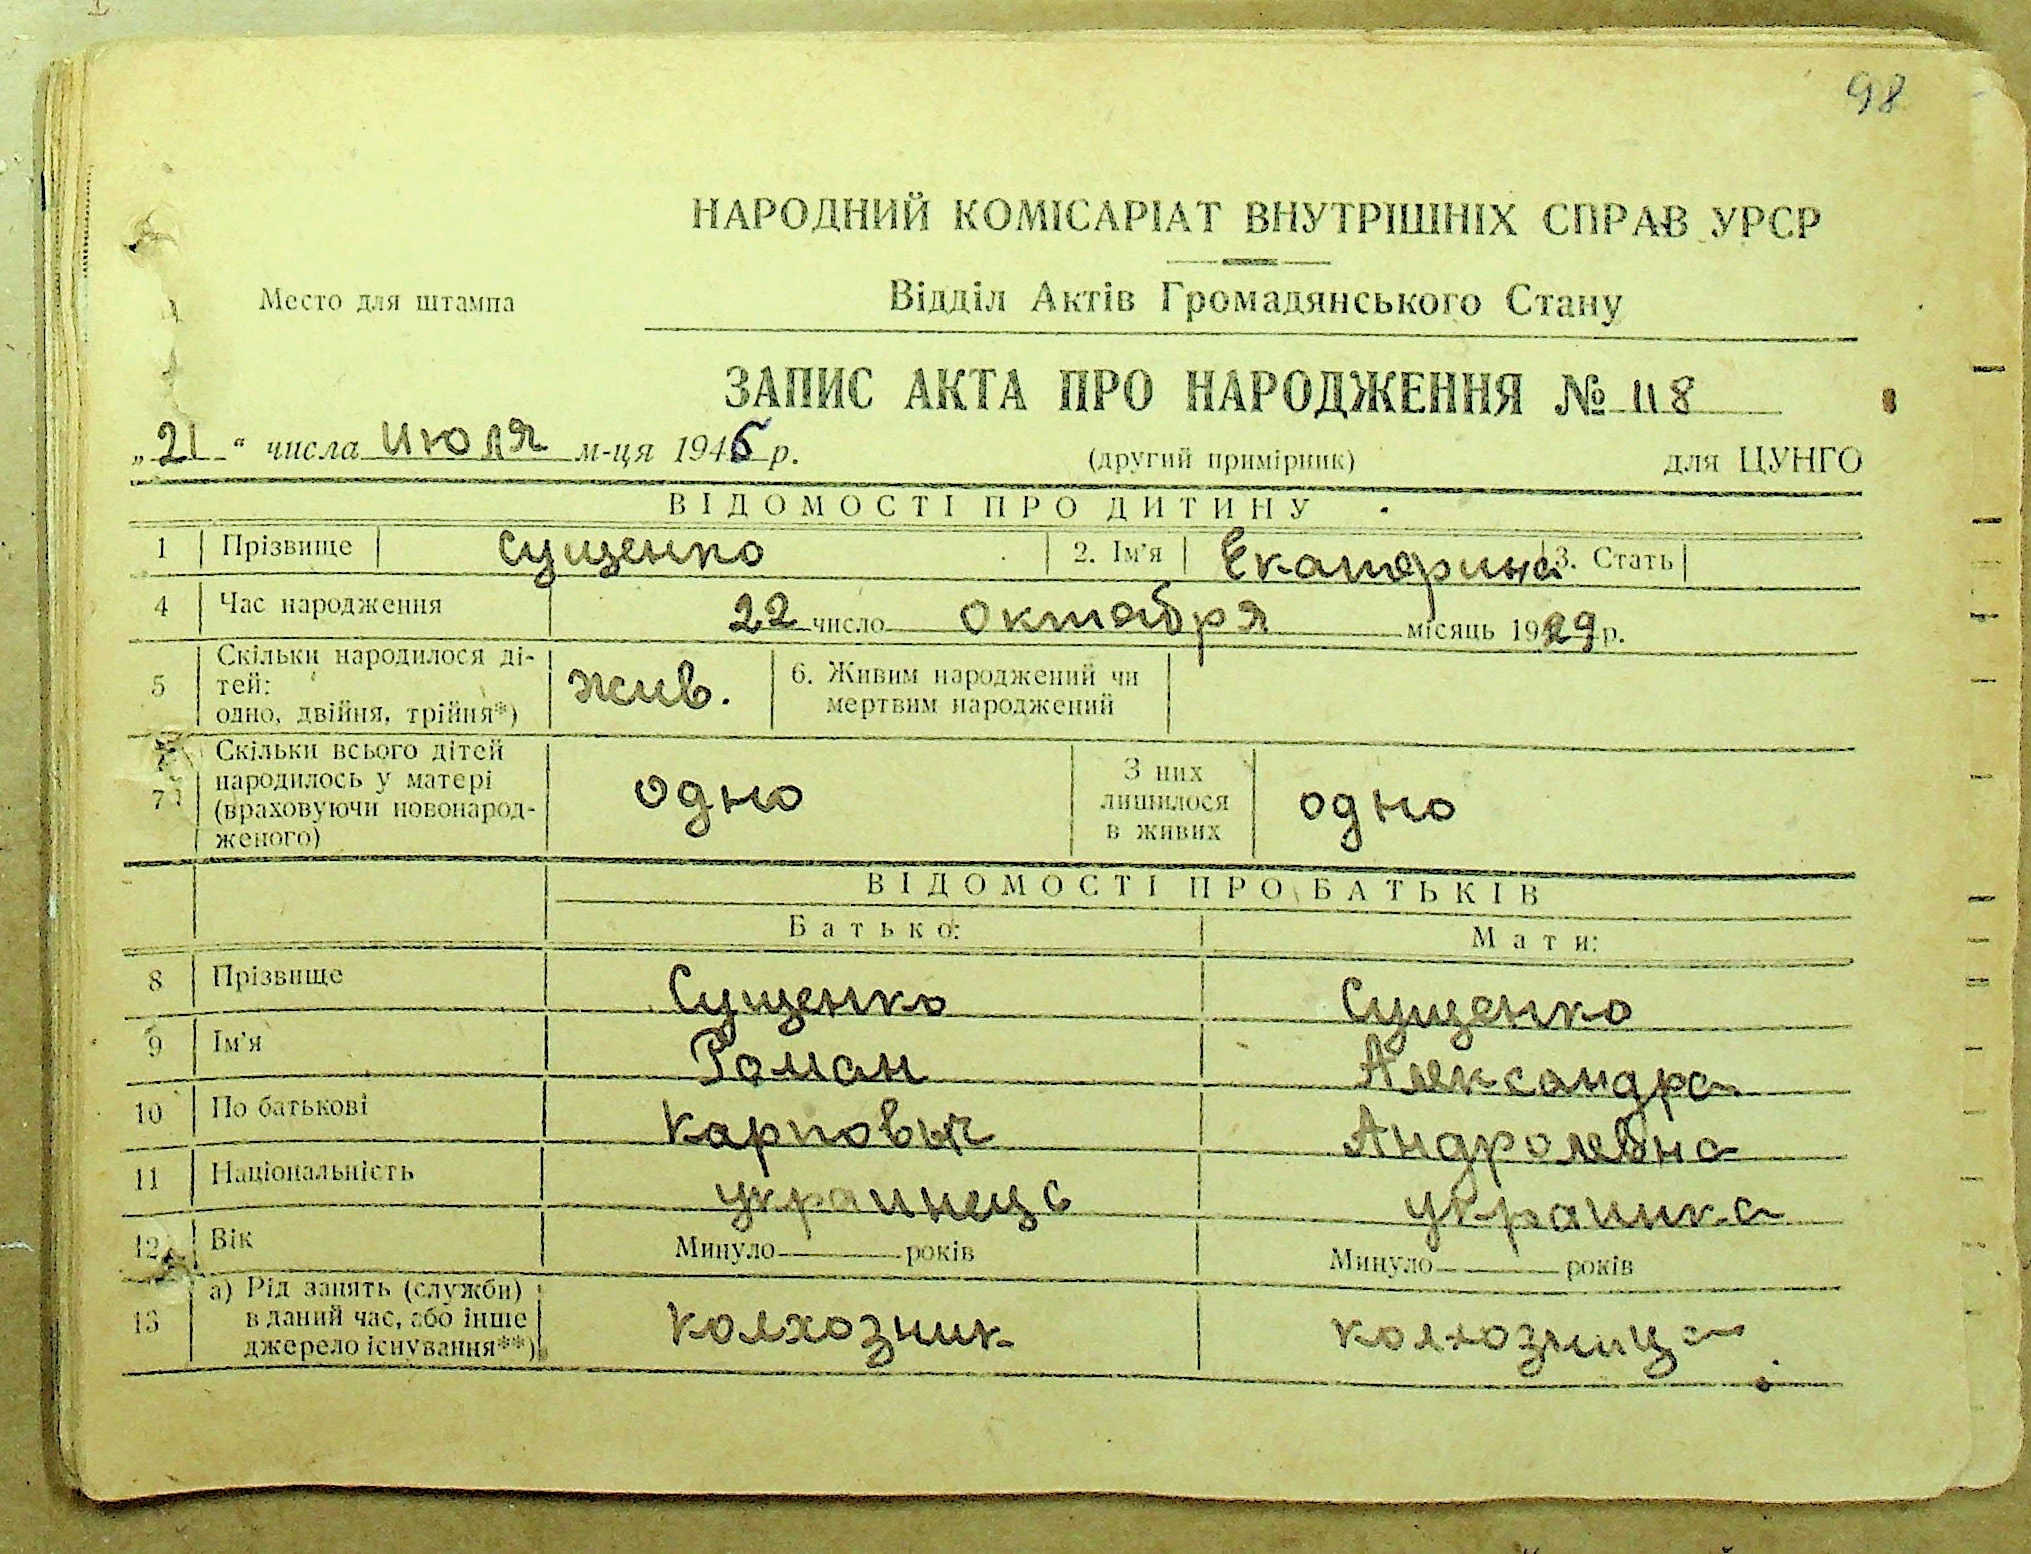 98
НАРОДНИЙ КОМІСАРІАТ ВНУТРІШНІХ СПРАВ УРСР
Место для штампа
Відділ Актів Громадянського Стану
ЗАПИС АКТА ПРО НАРОДЖЕННЯ № 118
„21“ числа июля м-ця 1945 р.
(другий примірник) для ЦУНГО
ВІДОМОСТІ ПРО ДИТИНУ
1 Прізвище Сущенко 2. Ім'я Екатерина 3. Стать
4 Час народження 22 число октября місяць 1929 р.
5 Скільки народилося ді-
тей:
одно, двійня, трійня*)
жив.
6. Живим народжений чи
мертвим народжений
7 Скільки всього дітей
народилось у матері
(враховуючи новонарод-
женого)
одно
З них
лишилося
в живих
одно
ВІДОМОСТІ ПРО БАТЬКІВ
Батько: Мати:
8 Прізвище Сущенко Сущенко
9 Ім'я Роман Александра
10 По батькові Карповыч
11 Національність украинець украинка
12 Вік Минуло років Минуло років
13 а) Рід занять (служби)
в даний час, або інше
джерело існування**)
колхозник колхозница